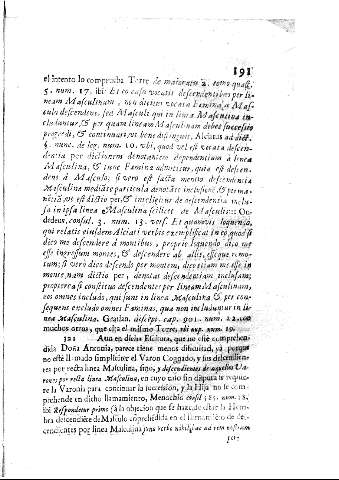 191
el intento lo comprueba Torre de maioratu 2. tomo quæst.
5. num. 17. ibi: Et eo casu vocatis descendentibus per li-
neam Masculinam, non dicitur vocata Fæmina, à Mas-
culo descendens, sed Masculi qui in linea Masculina in-
cluduntur, & per quam lineam Masculinam debet successio
progredi, & continuari, ut bene distinguit, Alciatus ad dict.
4. num. de leg. num. 10. ubi, quod vel est vocata descen-
dentia per dictionem denotantem dependentium à linea
Masculina, & tunc Fæmina admittitur, quia est descen-
dens à Masculo, si vero est facta mentio descendentia
Masculina mediate particula denotate inclusionē, & perma-
nētia, ut est dictio per, & intelligitur de descendentia inclu-
sa in ipsa linea Masculina scilicet de Masculis: On-
dedeus, consil. 3. num. 13. vers. Et quamvis loquencia,
qui relatis eiusdem Alciati verbis exemplificat in eo quod si
dico me descendere à montibus, proprie loquendo dico me
esse ingressum montes, & descendere ab illis, esseque remo-
tum; si verò dico descendere per montem, dico etiam me esse in
monte, nam dictio per, denotat descendentiam inclusam;
propterea si constitus descendenter per lineam Masculinam,
eos omnes includo, qui sunt in linea Masculina & per con-
sequens excludo omnes Fæminas, quæ non includuntur in
linea Masculina. Gratian. discept. cap. 901. num. 22. con
muchos otros, que cita el mismo Torre, ubi sup. num. 19.
321 Aun en dicha Escritura, que no esté comprehen-
dida Doña Antonia, parece tiene menos dificultad, yà porque
no està llamado simpliciter el Varon Cognado, y sus descendien-
tes por recta linea Masculina, sino, y descendientes de aquellos Va-
rones por recta linea Masculina, en cuyo caso sin disputa se requie-
re la Varonia para continuar la succession, y la Hija no se com-
prehende en dicho llamamiento, Menochio consil. 185. num. 18.
ibi: Respondetur primo (à la objecion que se hazia de estàr la Hem-
bra descendiēte de Masculo cōprehēdida en el llamamiēto de des-
cendientes por linea Masculina)